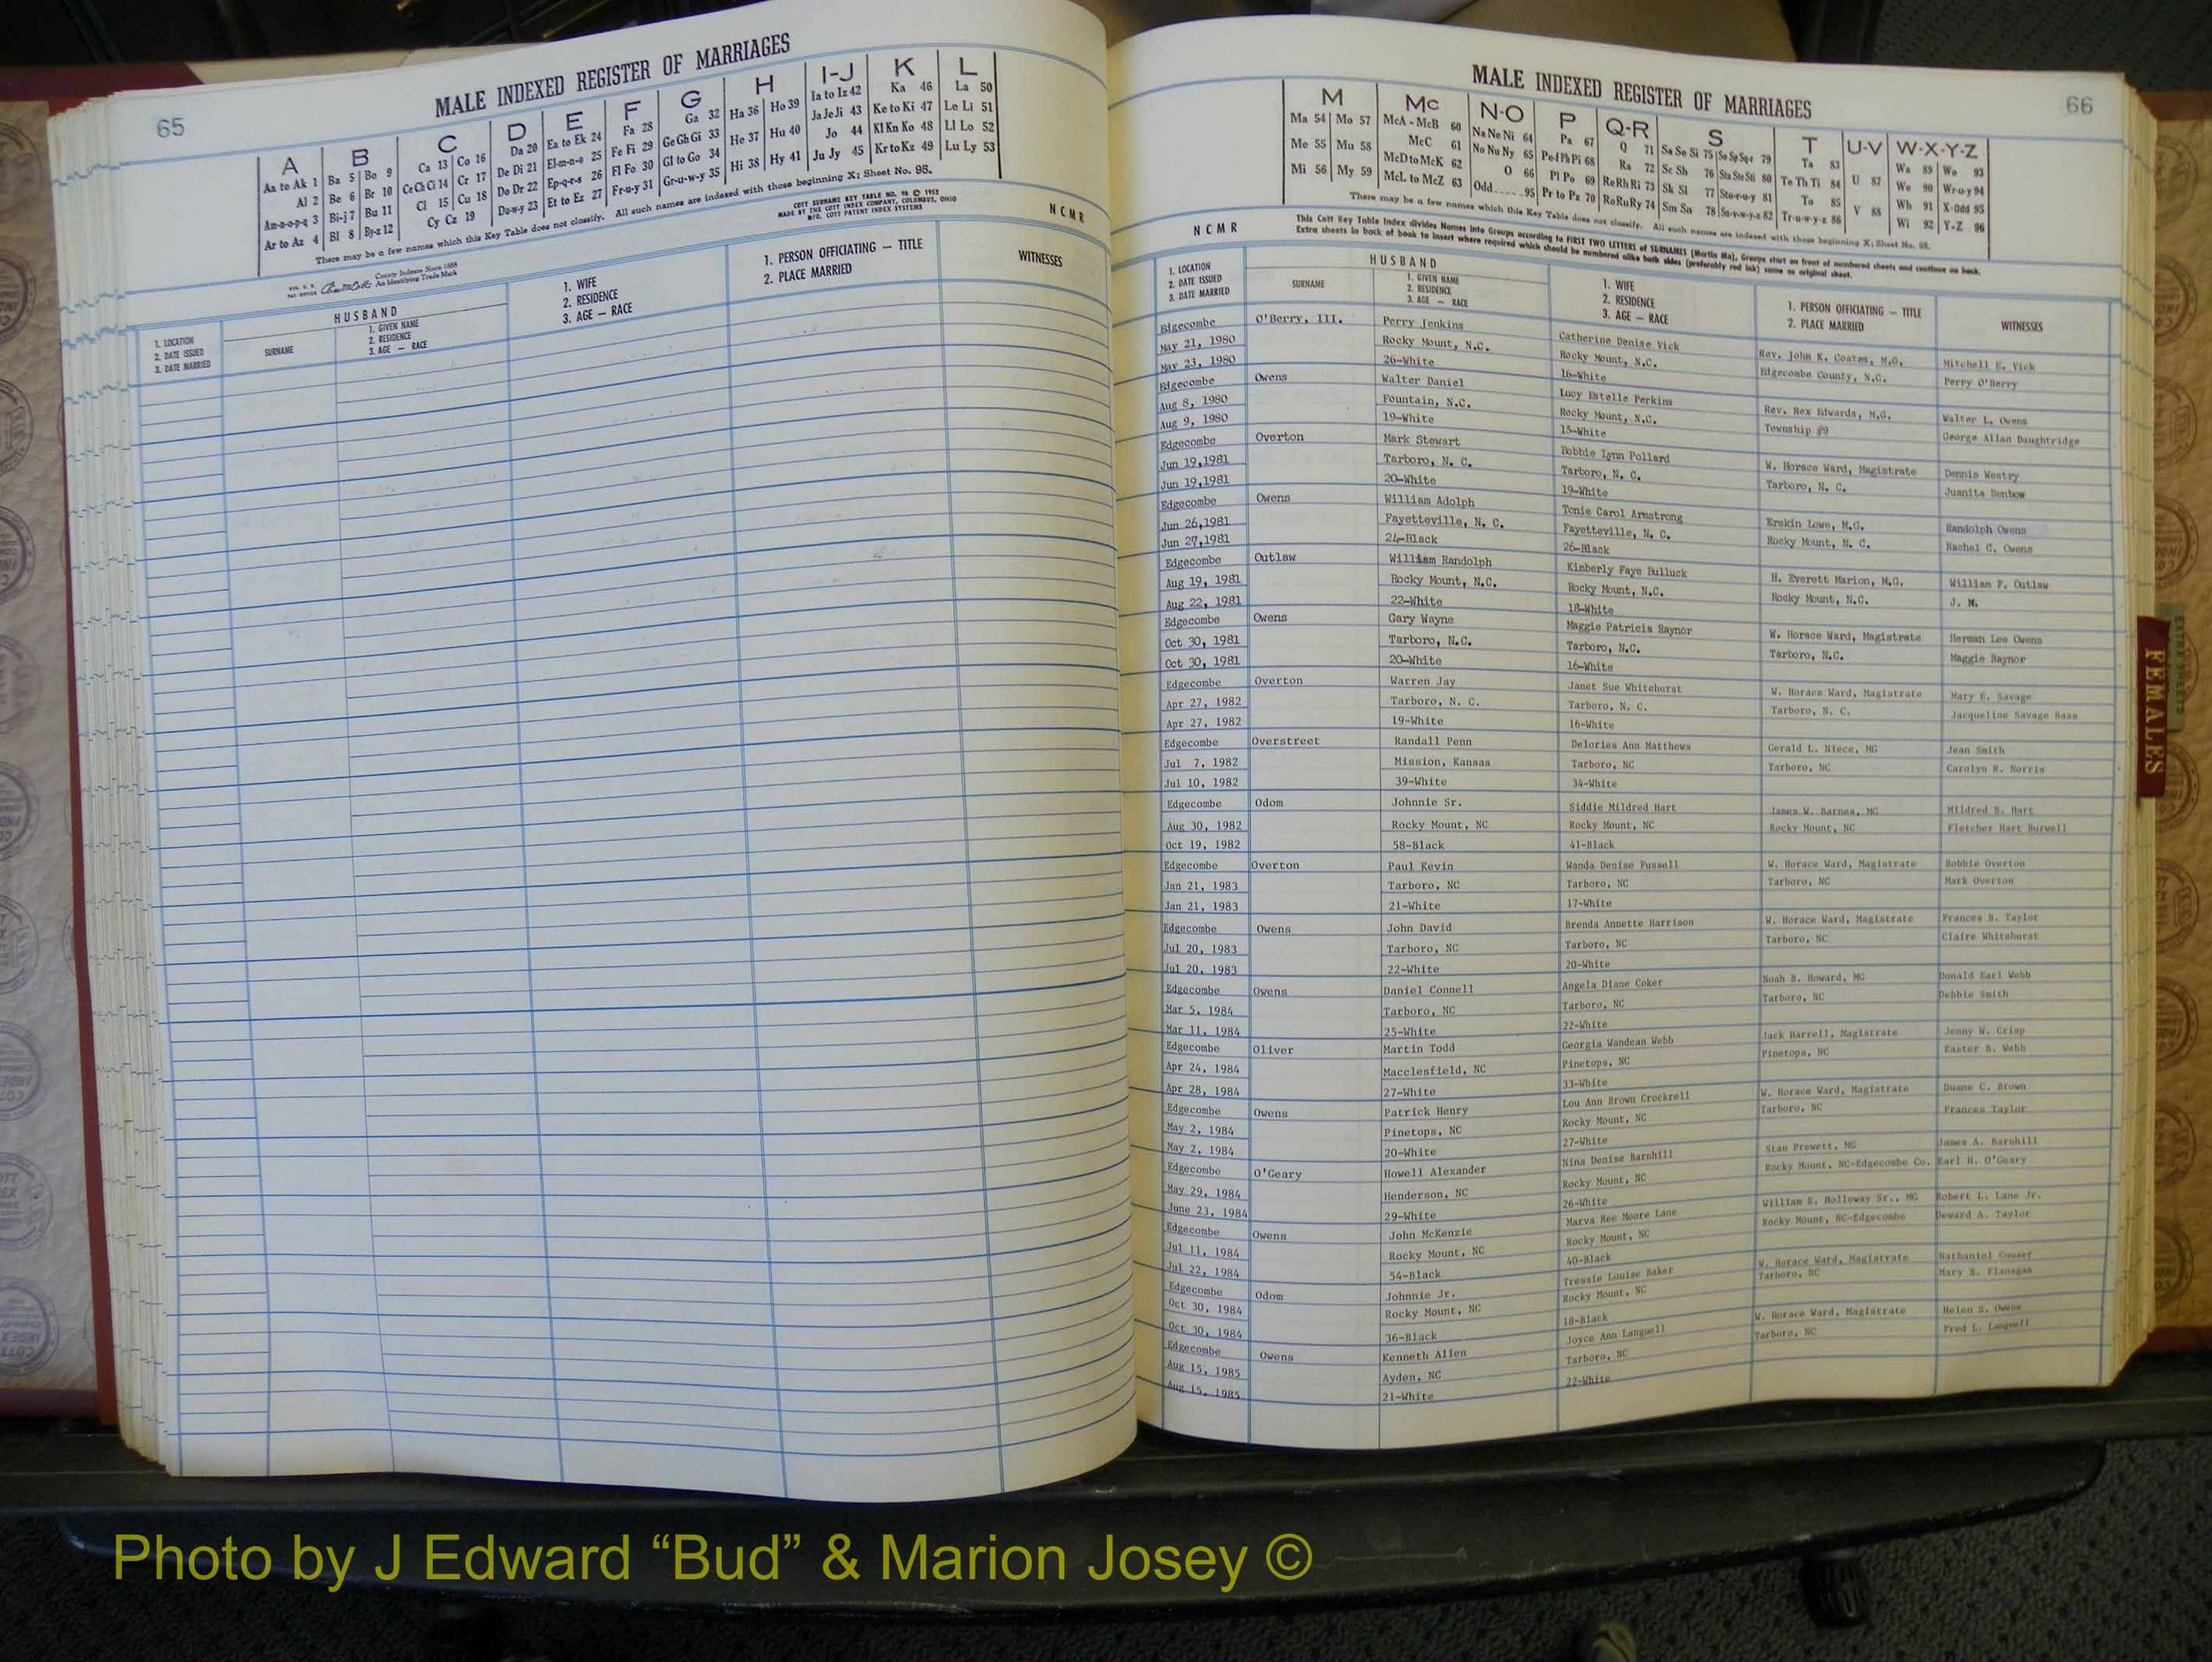 65
MALE INDEXED REGISTER OF MARRIAGES
A B C D E F G H I-J K L
Aa to Ak 1 Ba 5 Bo 9 Ca 13 Co 16 Da 20 Ea to Ek 24 Fa 28 Ga 32 Ha 36 Ho 39 Ia to Iz 42 Ka 46 La 50
Al 2 Be 6 Br 10 Ce Ch Ci 14 Cr 17 De Di 21 El-m-n-o 25 Fe Fi 29 Ge Gh Gi 33 He 37 Hu 40 Ja Je Ji 43 Ke to Ki 47 Le Li 51
Am-n-o-p-q 3 Bi-j 7 Bu 11 Cl 15 Cu 18 Do Dr 22 Ep-q-r-s 26 Fl Fo 30 Gl to Go 34 Hi 38 Hy 41 Jo 44 Kl Kn Ko 48 Ll Lo 52
Ar to Az 4 Bl 8 By-z 12 Cy Cz 19 Du-w-y 23 Et to Ez 27 Fr-u-y 31 Gr-u-w-y 35 Ju Jy 45 Kr to Kz 49 Lu Ly 53
There may be a few names which this Key Table does not classify. All such names are indexed with those beginning X; Sheet No. 98.
County Indexes Since 1888
An Identifying Trade Mark
COTT SURNAME KEY TABLE NO. 96 © 1952
MADE BY THE COTT INDEX COMPANY, COLUMBUS, OHIO
MFG. COTT PATENT INDEX SYSTEMS
NCMR
1. LOCATION
2. DATE ISSUED
3. DATE MARRIED
HUSBAND
SURNAME
1. GIVEN NAME
2. RESIDENCE
3. AGE — RACE
1. WIFE
2. RESIDENCE
3. AGE — RACE
1. PERSON OFFICIATING — TITLE
2. PLACE MARRIED
WITNESSES
66
MALE INDEXED REGISTER OF MARRIAGES
M Mc N-O P Q-R S T U-V W-X-Y-Z
Ma 54 Mo 57 McA - McB 60 Na Ne Ni 64 Pa 67 Q 71 Sa Se Si 75 So Sp Sq-r 79 Ta 83 Wa 89 Wo 93
Me 55 Mu 58 McC 61 No Nu Ny 65 Pe-f Ph Pi 68 Ra 72 Sc Sh 76 Sta Ste Sti 80 Te Th Ti 84 U 87 We 90 Wr-u-y 94
Mi 56 My 59 McD to McK 62 O 66 Pl Po 69 Re Rh Ri 73 Sk Sl 77 Sto-r-u-y 81 To 85 Wh 91 X-Odd 95
McL to McZ 63 Odd 95 Pr to Pz 70 Ro Ru Ry 74 Sm Sn 78 Su-v-w-y-z 82 Tr-u-w-y-z 86 V 88 Wi 92 Y-Z 96
There may be a few names which this Key Table does not classify. All such names are indexed with those beginning X; Sheet No. 98.
NCMR
This Cott Key Table Index divides Names into Groups according to FIRST TWO LETTERS of SURNAMES (Martin Ma), Groups start on front of numbered sheets and continue on back.
Extra sheets in back of book to insert where required which should be numbered alike both sides (preferably red ink) same as original sheet.
1. LOCATION
2. DATE ISSUED
3. DATE MARRIED
HUSBAND
SURNAME
1. GIVEN NAME
2. RESIDENCE
3. AGE — RACE
1. WIFE
2. RESIDENCE
3. AGE — RACE
1. PERSON OFFICIATING — TITLE
2. PLACE MARRIED
WITNESSES
Edgecombe O'Berry, III. Perry Jenkins Catherine Denise Vick Rev. John K. Coates, M.G. Mitchell E. Vick
May 21, 1980 Rocky Mount, N.C. Rocky Mount, N.C. Edgecombe County, N.C. Perry O'Berry
May 23, 1980 26-White 16-White
Edgecombe Owens Walter Daniel Lucy Estelle Perkins Rev. Rex Edwards, M.G. Walter L. Owens
Aug 8, 1980 Fountain, N.C. Rocky Mount, N.C. Township #9 George Allan Daughtridge
Aug 9, 1980 19-White 15-White
Edgecombe Overton Mark Stewart Bobbie Lynn Pollard W. Horace Ward, Magistrate Dennis Westry
Jun 19,1981 Tarboro, N. C. Tarboro, N. C. Tarboro, N. C. Juanita Benbow
Jun 19,1981 20-White 19-White
Edgecombe Owens William Adolph Tonie Carol Armstrong Erskin Lowe, M.G. Randolph Owens
Jun 26,1981 Fayetteville, N. C. Fayetteville, N. C. Rocky Mount, N. C. Rachel C. Owens
Jun 27,1981 24-Black 26-Black
Edgecombe Outlaw William Randolph Kimberly Faye Bulluck H. Everett Marion, M.G. William F. Outlaw
Aug 19, 1981 Rocky Mount, N.C. Rocky Mount, N.C. Rocky Mount, N.C. J. M.
Aug 22, 1981 22-White 18-White
Edgecombe Owens Gary Wayne Maggie Patricia Raynor W. Horace Ward, Magistrate Herman Lee Owens
Oct 30, 1981 Tarboro, N.C. Tarboro, N.C. Tarboro, N.C. Maggie Raynor
Oct 30, 1981 20-White 16-White
Edgecombe Overton Warren Jay Janet Sue Whitehurst W. Horace Ward, Magistrate Mary E. Savage
Apr 27, 1982 Tarboro, N. C. Tarboro, N. C. Tarboro, N. C. Jacqueline Savage Bass
Apr 27, 1982 19-White 16-White
Edgecombe Overstreet Randall Penn Delories Ann Matthews Gerald L. Niece, MG Jean Smith
Jul 7, 1982 Mission, Kansas Tarboro, NC Tarboro, NC Carolyn R. Norris
Jul 10, 1982 39-White 34-White
Edgecombe Odom Johnnie Sr. Siddie Mildred Hart James W. Barnes, MG Mildred B. Hart
Aug 30, 1982 Rocky Mount, NC Rocky Mount, NC Rocky Mount, NC Fletcher Hart Burwell
Oct 19, 1982 58-Black 41-Black
Edgecombe Overton Paul Kevin Wanda Denise Fussell W. Horace Ward, Magistrate Bobbie Overton
Jan 21, 1983 Tarboro, NC Tarboro, NC Tarboro, NC Mark Overton
Jan 21, 1983 21-White 17-White
Edgecombe Owens John David Brenda Annette Harrison W. Horace Ward, Magistrate Frances B. Taylor
Jul 20, 1983 Tarboro, NC Tarboro, NC Tarboro, NC Claire Whitehurst
Jul 20, 1983 22-White 20-White
Edgecombe Owens Daniel Connell Angela Diane Coker Noah B. Howard, MG Donald Earl Webb
Mar 5, 1984 Tarboro, NC Tarboro, NC Tarboro, NC Debbie Smith
Mar 11, 1984 25-White 22-White
Edgecombe Oliver Martin Todd Georgia Wandean Webb Jack Harrell, Magistrate Jenny W. Crisp
Apr 24, 1984 Macclesfield, NC Pinetops, NC Pinetops, NC Easter B. Webb
Apr 28, 1984 27-White 33-White
Edgecombe Owens Patrick Henry Lou Ann Brown Crockrell W. Horace Ward, Magistrate Duane C. Brown
May 2, 1984 Pinetops, NC Rocky Mount, NC Tarboro, NC Frances Taylor
May 2, 1984 20-White 27-White
Edgecombe O'Geary Howell Alexander Nina Denise Barnhill Stan Prewett, MG James A. Barnhill
May 29, 1984 Henderson, NC Rocky Mount, NC Rocky Mount, NC-Edgecombe Co. Earl H. O'Geary
June 23, 1984 29-White 26-White
Edgecombe Owens John McKenzie Marva Ree Moore Lane William E. Holloway Sr., MG Robert L. Lane Jr.
Jul 11, 1984 Rocky Mount, NC Rocky Mount, NC Rocky Mount, NC-Edgecombe Deward A. Taylor
Jul 22, 1984 54-Black 40-Black
Edgecombe Odom Johnnie Jr. Tressie Louise Baker W. Horace Ward, Magistrate Nathaniel Couser
Oct 30, 1984 Rocky Mount, NC Rocky Mount, NC Tarboro, NC Mary B. Flanagan
Oct 30, 1984 36-Black 18-Black
Edgecombe Owens Kenneth Allen Joyce Ann Languell W. Horace Ward, Magistrate Helen S. Owens
Aug 15, 1985 Ayden, NC Tarboro, NC Tarboro, NC Fred L. Languell
Aug 15, 1985 21-White 22-White
EXTRA SHEETS
FEMALES
Photo by J Edward “Bud” & Marion Josey ©